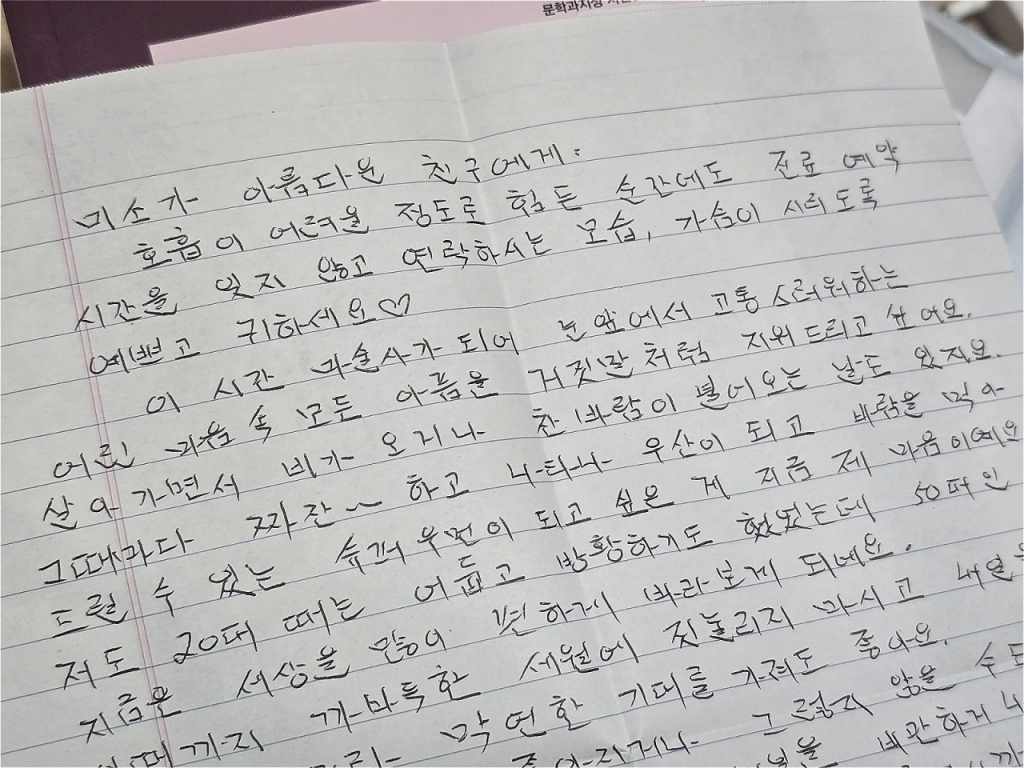 문학과지성
미소가 아름다운 친구에게:
호흡이 어려울 정도로 힘든 순간에도 진료 예약
시간을 잊지 않고 연락하시는 모습, 가슴이 시리도록
예쁘고 귀하세요♡
이 시간 마술사가 되어 눈앞에서 고통스러워하는
어린 마음 속 모든 아픔을 거짓말처럼 지워드리고 싶어요.
살아가면서 비가 오거나 찬바람이 불어오는 날도 있지요.
그때마다 짜잔~ 하고 나타나 우산이 되고 바람을 막아
드릴 수 있는 슈퍼우먼이 되고 싶은 게 지금 제 마음이에요
저도 20대 때는 어둡고 방황하기도 했었는데 50대인
지금은 세상을 많이 편하게 바라보게 되네요.
까지 까마득한 세월에 짓눌리지 마시고 내일
막연한 기대를 가져도 좋아요.
좋아지거나 그렇지 않을 수도
비관하거나